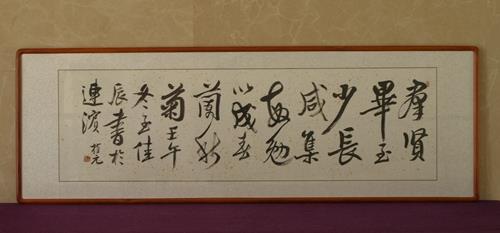 羣賢
畢至
少長
咸集
勉
以成春
蘭秋
菊壬午
冬至佳
辰書於
連濱